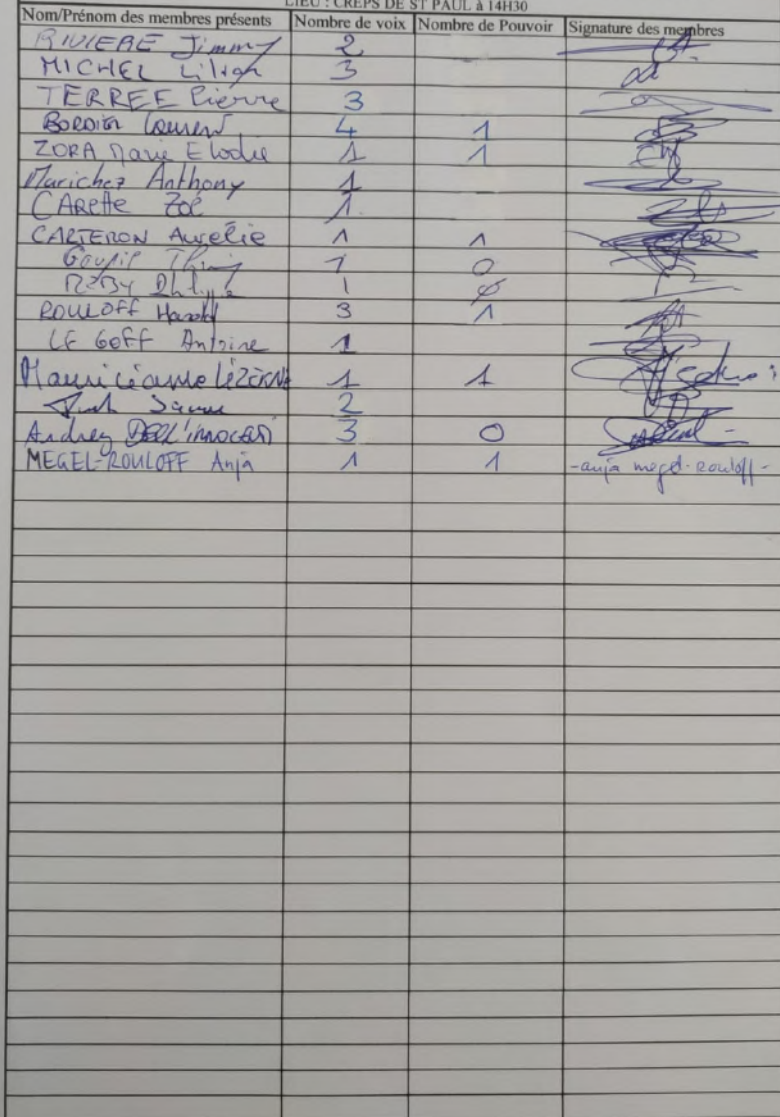 LIEU : CREPS DE ST PAUL à 14H30
Nom/Prénom des membres présents Nombre de voix Nombre de Pouvoir Signature des membres
RIVIERE Jimmy 2
MICHEL Lilian 3
TERREE Pierre 3
BORDIER Laurent 4 1
ZORA Marie Elodie 1 1
Marichez Anthony 1
CARette Zoé 1
CARTERON Aurélie 1 1
Goupil 1 0
1 0
ROULOFF Harold 3 1
LE GOFF Antoine 1
1 1
2
Audrey DELL'innocenti 3 0
MEGEL-ROULOFF Anja 1 1 -anja megel-rouloff-